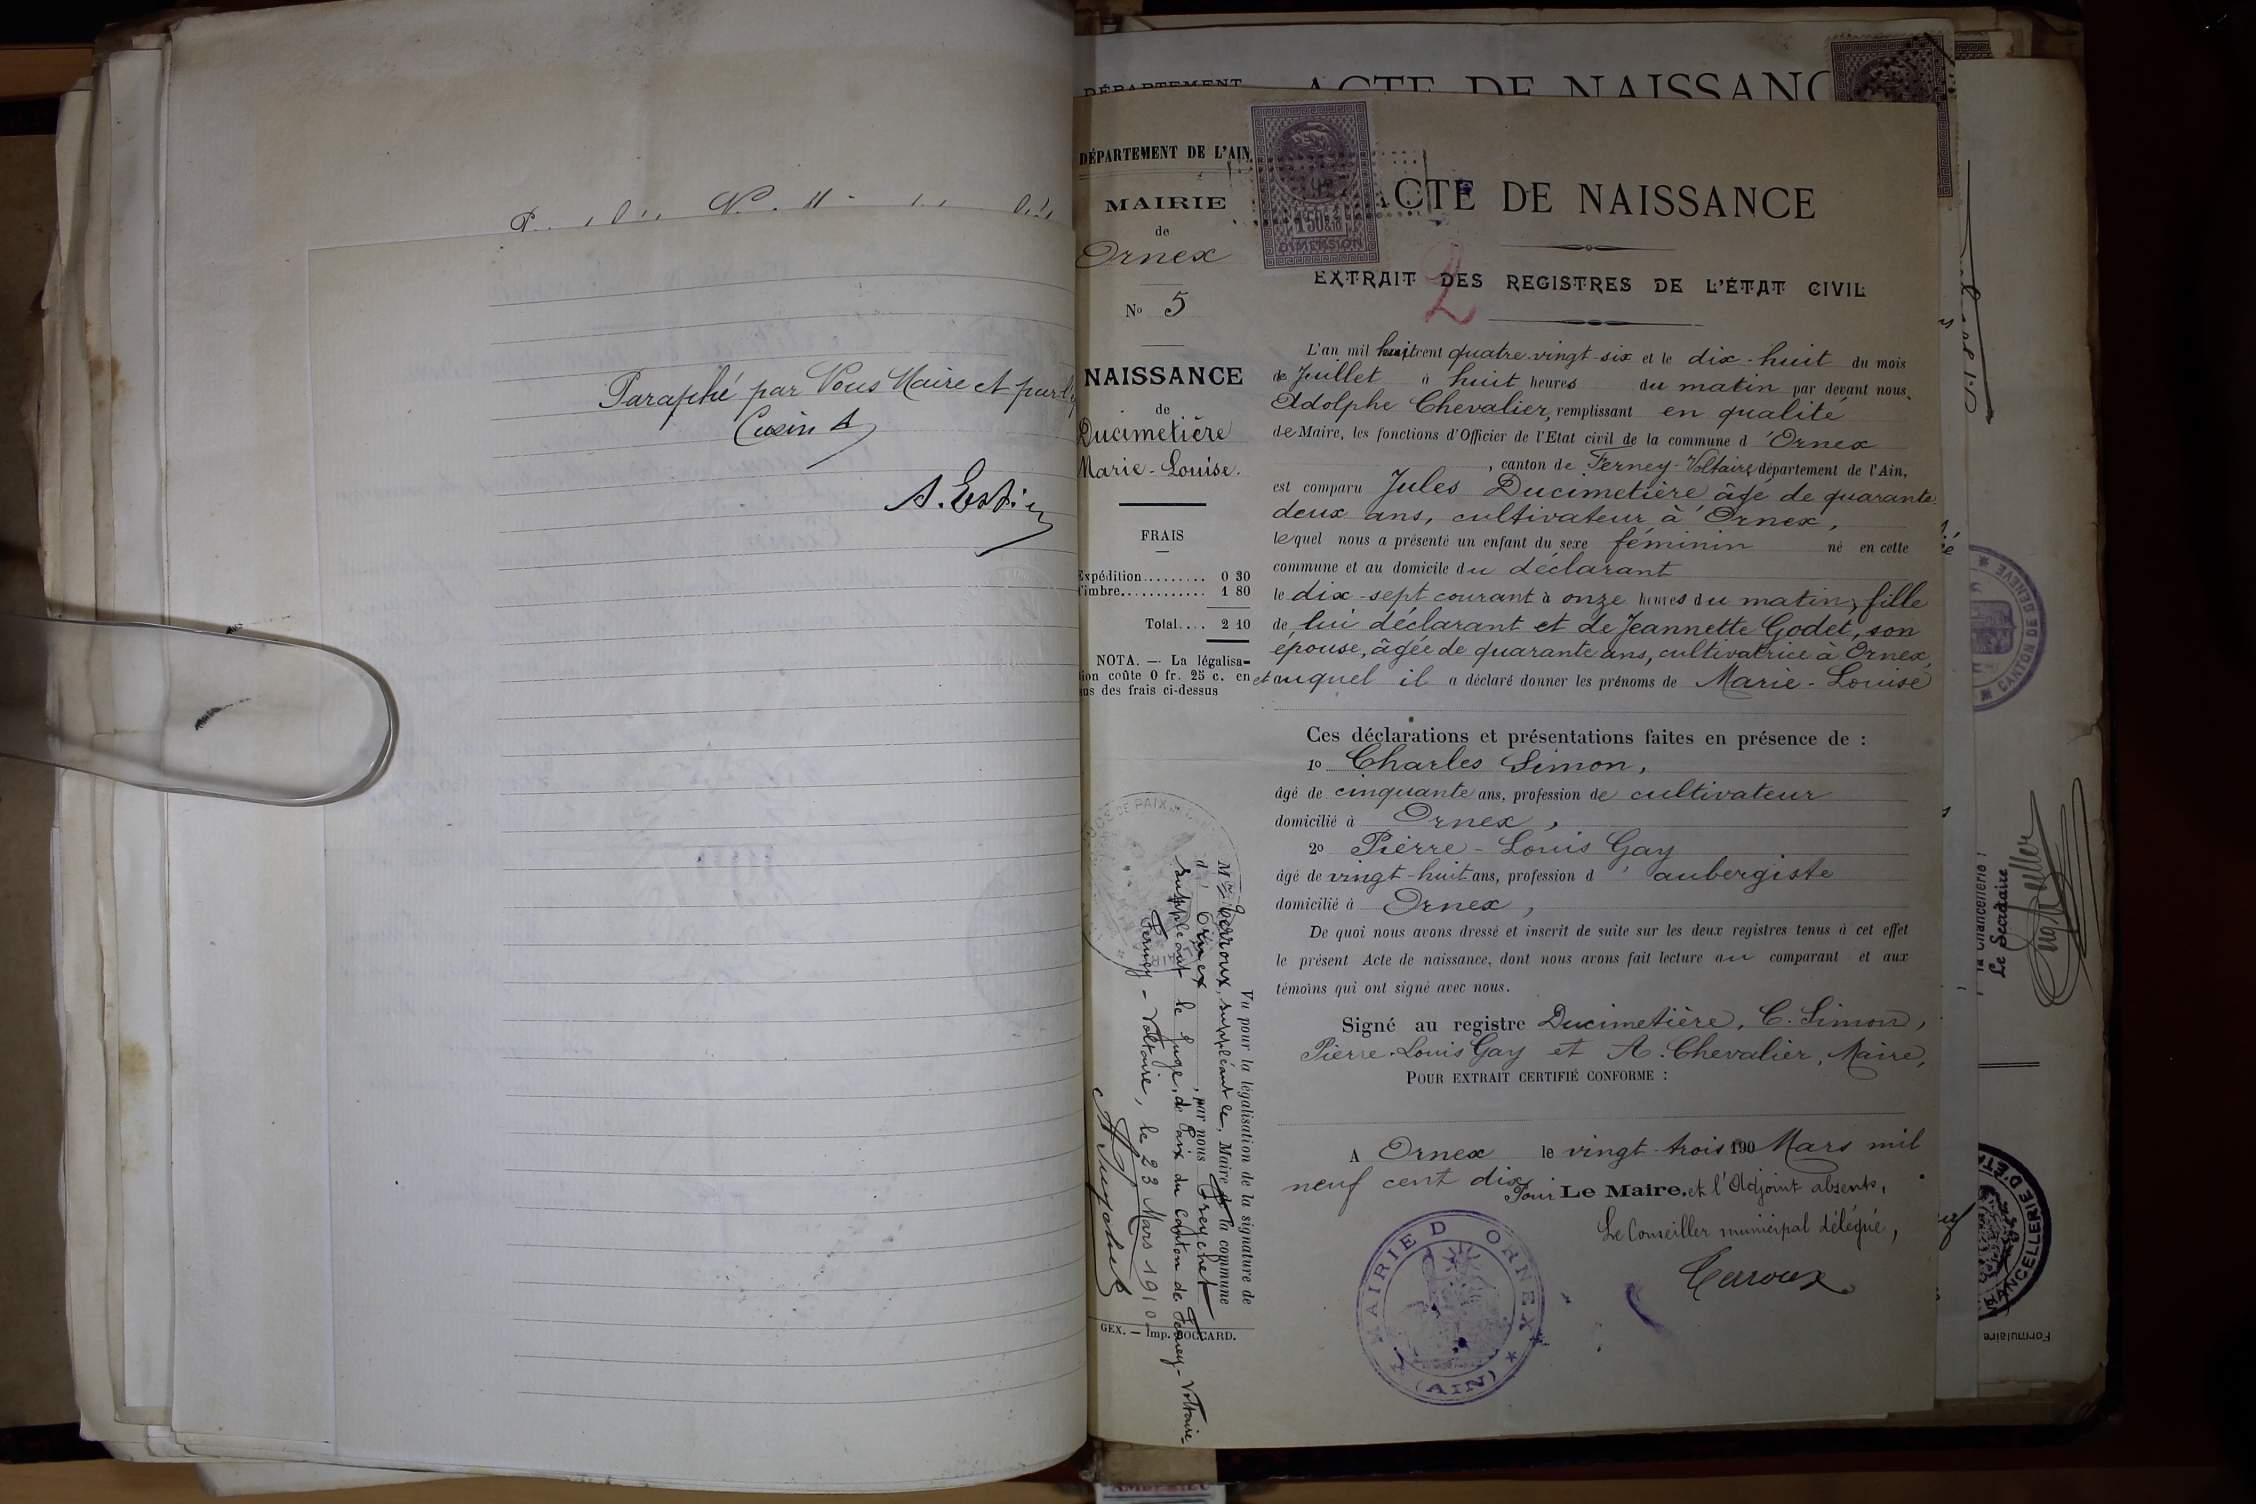 Paraphé par Nous Maire et par
Cusin A
A. Estin
DÉPARTEMENT
ACTE DE NAISSANC
DÉPARTEMENT DE L'AIN
MAIRIE
de
Ornex
No 5
NAISSANCE
de
Ducimetière
Marie-Louise.
FRAIS
Expédition......... 0 30
Timbre............ 1 80
Total.... 2 10
NOTA. — La légalisa-
tion coûte 0 fr. 25 c. en
sus des frais ci-dessus
Vu pour la légalisation de la signature de
Mr Terroux, suppléant le, Maire de la commune
d'Ornex, par nous Greychet
suppléant le Juge de Paix du Canton de Ferney-Voltaire
Ferney-Voltaire, le 23 Mars 1910
GEX. — Imp. BOCCARD.
1 50 &
DIMENSION
ACTE DE NAISSANCE
EXTRAIT DES REGISTRES DE L'ÉTAT CIVIL
2
L'an mil huit cent quatre-vingt-six et le dix-huit du mois
de Juillet à huit heures du matin par devant nous,
Adolphe Chevalier, remplissant en qualité
de Maire, les fonctions d'Officier de l'Etat civil de la commune d'Ornex
, canton de Ferney-Voltaire, département de l'Ain,
est comparu Jules Ducimetière âge de quarante
deux ans, cultivateur à Ornex,
lequel nous a présenté un enfant du sexe féminin né en cette
commune et au domicile du déclarant
le dix-sept courant à onze heures du matin, fille
de lui déclarant et de Jeannette Godet, son
épouse, âgée de quarante ans, cultivatrice à Ornex,
et auquel il a déclaré donner les prénoms de Marie-Louise
Ces déclarations et présentations faites en présence de :
1o Charles Simon,
âgé de cinquante ans, profession de cultivateur
domicilié à Ornex,
2o Pierre-Louis Gay
âgé de vingt-huit ans, profession d'aubergiste
domicilié à Ornex,
De quoi nous avons dressé et inscrit de suite sur les deux registres tenus à cet effet
le présent Acte de naissance, dont nous avons fait lecture au comparant et aux
témoins qui ont signé avec nous.
Signé au registre Ducimetière, C. Simon,
Pierre-Louis Gay et A. Chevalier, Maire,
POUR EXTRAIT CERTIFIÉ CONFORME :
A Ornex le vingt-trois 190 Mars mil
neuf cent dix
Pour Le Maire, et l'Adjoint absents,
Le Conseiller municipal délégué,
Terroux
MAIRIE D ORNEX
(AIN)
CANTON DE GENÈVE
la Chancellerie :
Le Secrétaire
CHANCELLERIE D'ÉTAT
Formulaire